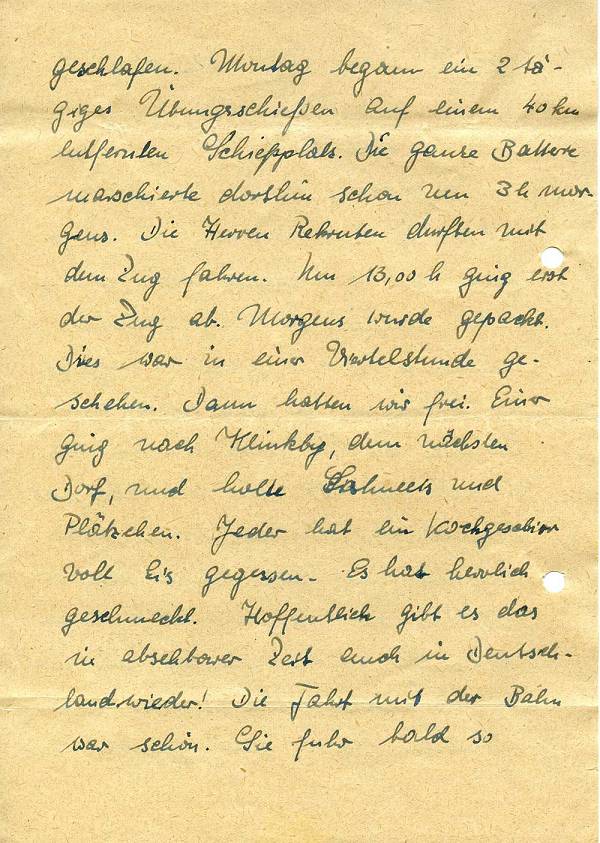 geschlafen. Montag begann ein 2 tä-
giges Übungsschießen auf einem 40 km
entfernten Schießplatz. Die ganze Batterie
marschierte dorthin schon um 3 h mor-
gens. Die Herren Rekruten durften mit
dem Zug fahren. Um 13,00 h ging erst
der Zug ab. Morgens wurde gepackt.
Dies war in einer Viertelstunde ge-
schehen. Dann hatten wir frei. Einer
ging nach Klinkby, dem nächsten
Dorf, und holte und
Plätzchen. Jeder hat ein Kochgeschirr
voll Eis gegessen. Es hat herrlich
geschmeckt. Hoffentlich gibt es das
in absehbarer Zeit auch in Deutsch-
land wieder! Die Fahrt mit der Bahn
war schön. Sie fuhr bald so